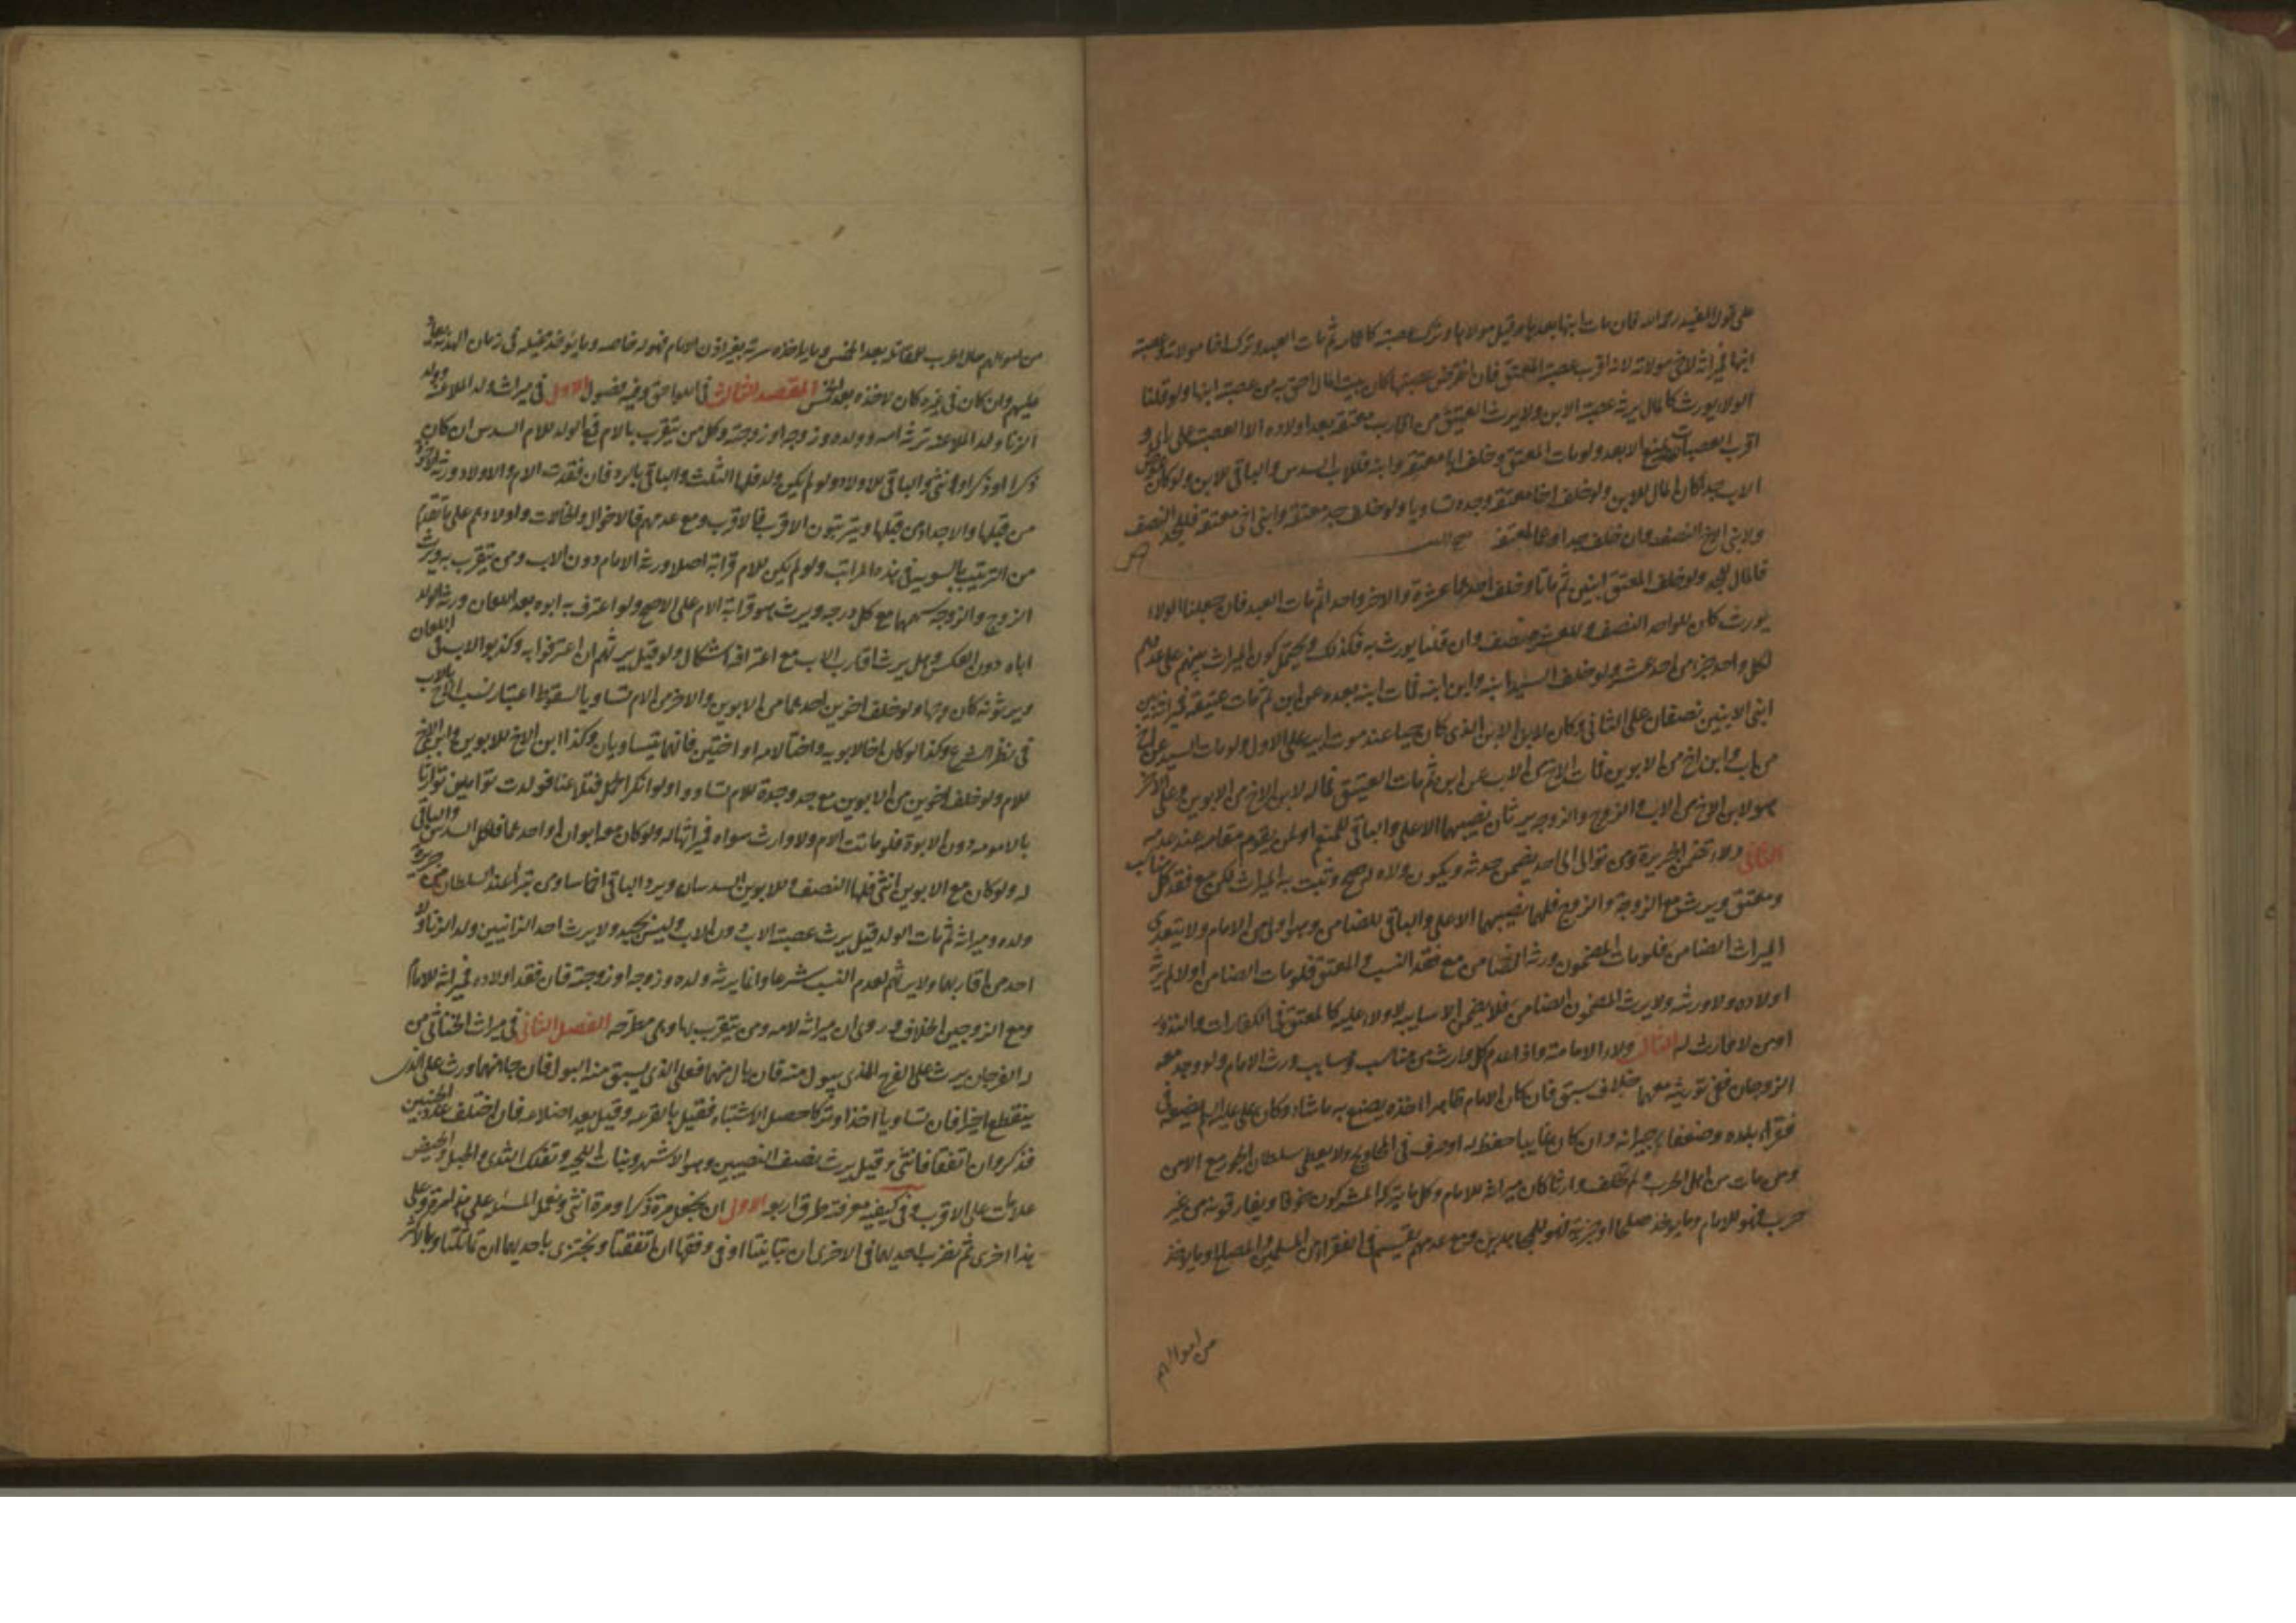 على قول المفيد رحمه الله فان مات ابنها بعدها وقبل مولاها وترك عصبة كاعمام ثم مات العبد وترك اخا مولاته وعصبة
ابنها فميراثه لاخي مولاته لانه اقرب عصبة المعتق فان انقرض عصبتها كان بيت المال احق به من عصبة ابنها ولو قلنا
الولا يورث كالمال يرثه عصبة الابن ولا يرث العتيق من اقارب معتقه بعد اولاده الا العصبة على راي و
اقرب العصبات يمنع الابعد ولو مات المعتق وخلف ابا معتقه وابنه فللاب السدس والباقي للابن ولو كان عوض
الاب جد كان المال للابن ولو خلف اخا معتقه وجده تساويا ولو خلف جد معتقه وابني اخي معتقه فللجد النصف
ولابني الاخ النصف وان خلف جدا وعما لمعتقه
فالمال للجد ولو خلف المعتق ابنين ثم ماتا وخلف احدهما عشرة والاخر واحدا ثم مات العبد فان جعلنا الولاء
يورث كان للواحد النصف وللعشرة نصف وان قلنا يورث به فكذلك ويحتمل كون الميراث بينهم على عددهم
لكل واحد جزء من احد عشر ولو خلف السيد ابنه وابن ابنه فمات ابنه بعده عن ابن ثم مات عتيقه فميراثه بين
ابني الابنين نصفان على الثاني وكان لابن الابن الذي كان حيا عند موت ابيه على الاول ولو مات السيد عن اخ
من اب وابن اخ من الابوين فمات الاخ من الاب عن ابن ثم مات العتيق فماله لابن الاخ من الابوين وعلى الاخر
هو لابن الاخ من الاب والزوج والزوجة يرثان نصيبهما الاعلى والباقي للمنعم او لمن يقوم مقامه عند عدمه
الثاني ولاء تضمن الجريرة ومن توالى الى احد يضمن حدثه ويكون ولاه له صح وثبت به الميراث لكن مع فقد كل مناسب
ومعتق ويرث مع الزوجة والزوج فلهما نصيبهما الاعلى والباقي للضامن وهو اولى من الامام ولا يتعدى
الميراث الضامن فلو مات المضمون ورثه الضامن مع فقد النسب والمعتق فلو مات الضامن اولا لم يرثه
اولاده ولا ورثه ولا يرث المضمون الضامن فلا يضمن الا سايبة لا ولاء عليه كالمعتق في الكفارات والنذور
او من لا وارث له الثالث ولاء الامامة واذا عدم كل وارث من مناسب وسايب ورث الامام ولو وجد معه
الزوجان ففي توريثه معهما خلاف سبق فان كان الامام ظاهرا اخذه يصنع به ما شاء وكان علي عليه السلام يضعه في
فقراء بلده وضعفاء جيرانه وان كان غايبا حفظ له او صرف في المحاويج ولا يعطى سلطان الجور مع الامن
ومن مات من اهل الحرب ولم يخلف وارثا كان ميراثه للامام وكل ما يتركه المشركون خوفا ويفارقونه من غير
حرب فهو للامام وما يوخذ صلحا او جزية فهو للمجاهدين ومع عدمهم يقسم في الفقراء من المسلمين والمصالح او ما ياخذ
من اموالهم
من اموالهم حال الحرب للمقاتلة بعد الخمس وما ياخذه سرية بغير اذن الامام فهو له خاصه وما يوخذ غيلة في زمان الهدنة يعاد
عليهم وان كان في غيره كان لاخذه بعد الخمس المقصد الثالث في اللواحق وفيه فصول الاول في ميراث ولد الملاعنة وولد
الزنا ولد الملاعنة ترثه امه وولده وزوجه او زوجته وكل من يتقرب بالام فمع الولد للام السدس ان كان
ذكرا او ذكرا وانثى والباقي للاولاد ولو لم يكن ولد فلها الثلث والباقي بالرد فان فقدت الام والاولاد ورثه الاخوة
من قبلها والاجداد من قبلها ويترتبون الاقرب فالاقرب ومع عدمهم فالاخوال والخالات واولادهم على ما تقدم
من الترتيب بالسوية في هذه المراتب ولو لم يكن للام قرابة اصلا ورثه الامام دون الاب ومن يتقرب به ويرث
الزوج والزوجة سهمهما مع كل درجة ويرث هو قرابة الام على الاصح ولو اعترف به ابوه بعد اللعان ورثه الولد
اباه دون العكس وهل يرث اقارب الاب مع اعترافه اشكال ولو قيل يرثهم ان اعترفوا به وكذبوا الاب في اللعان
ويرثونه كان وجها ولو خلف اخوين احدهما من الابوين والاخر من الام تساويا لسقوط اعتبار نسب الاخ بالاب
في نظر الشرع وكذا لو كان اخا لابويه واختا لامه او اختين فانهما يتساويان وكذا ابن الاخ للابوين وابن الاخ
للام ولو خلف اخوين من الابوين مع جد وجدة للام تساووا ولو انكر الحمل فتلاعنا فولدت توامين توارثا
بالامومة دون الابوة فلو ماتت الام ولا وارث سواه فميراثها له ولو كان معه ابوان او احدهما فلكل السدس والباقي
له ولو كان مع الابوين انثى فلها النصف وللابوين السدسان ويرد الباقي اخماسا ومن تبرأ عند السلطان من جريرة
ولده وميراثه ثم مات الولد قيل يرث عصبة الاب دون الاب وليس بجيد ولا يرث احد الزانيين ولد الزنا ولا
احد من اقاربهما ولا يرثهم لعدم النسب شرعا وانما يرثه ولده وزوجه او زوجته فان فقد اولاده فميراثه للامام
ومع الزوجين الخلاف وروي ان ميراثه لامه ومن يتقرب بها وهي مطرحه الفصل الثاني في ميراث الخناثى من
له الفرجان يرث على الفرج الذي يبول منه فان بال منهما فعلى الذي يسبق منه البول فان جا منهما ورث على الذي
ينقطع اخيرا فان تساويا اخذا وتركا حصل الاشتباه فقيل بالقرعة وقيل بعد اضلاعه فان اختلف عدد الجنبين
فذكر وان اتفقا فانثى وقيل يرث نصف النصيبين وهو الاشهر ونبات اللحية وتفلك الثدي والحبل والحيض
علامات على الاقرب وفي كيفية معرفته طرق اربعة الاول ان يجعل مرة ذكرا ومرة انثى وتعمل المسئلة على هذا مرة وعلى
هذا اخرى ثم تضرب احديهما في الاخرى ان تباينتا او في وفقها ان اتفقتا وتجتزى باحديهما ان تماثلتا وبالاكثر